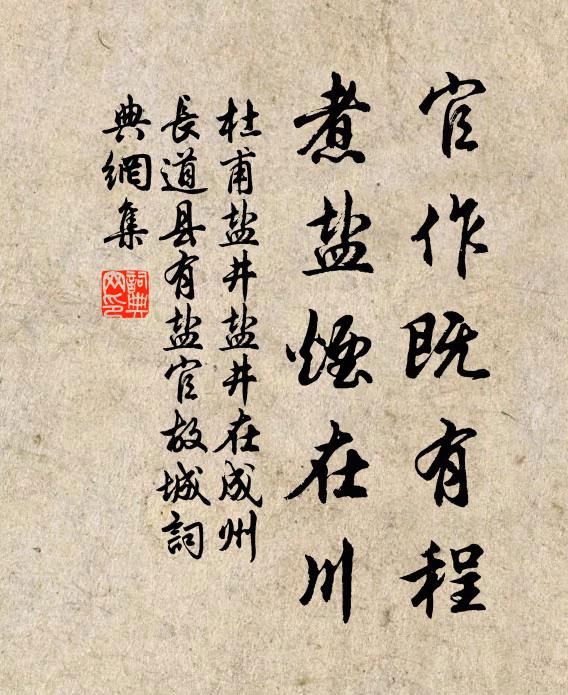 官作既有程
煮盐煙在川
杜甫盐井盐井在成州
长道县有盐官故城詞
典網集
詞典
网印